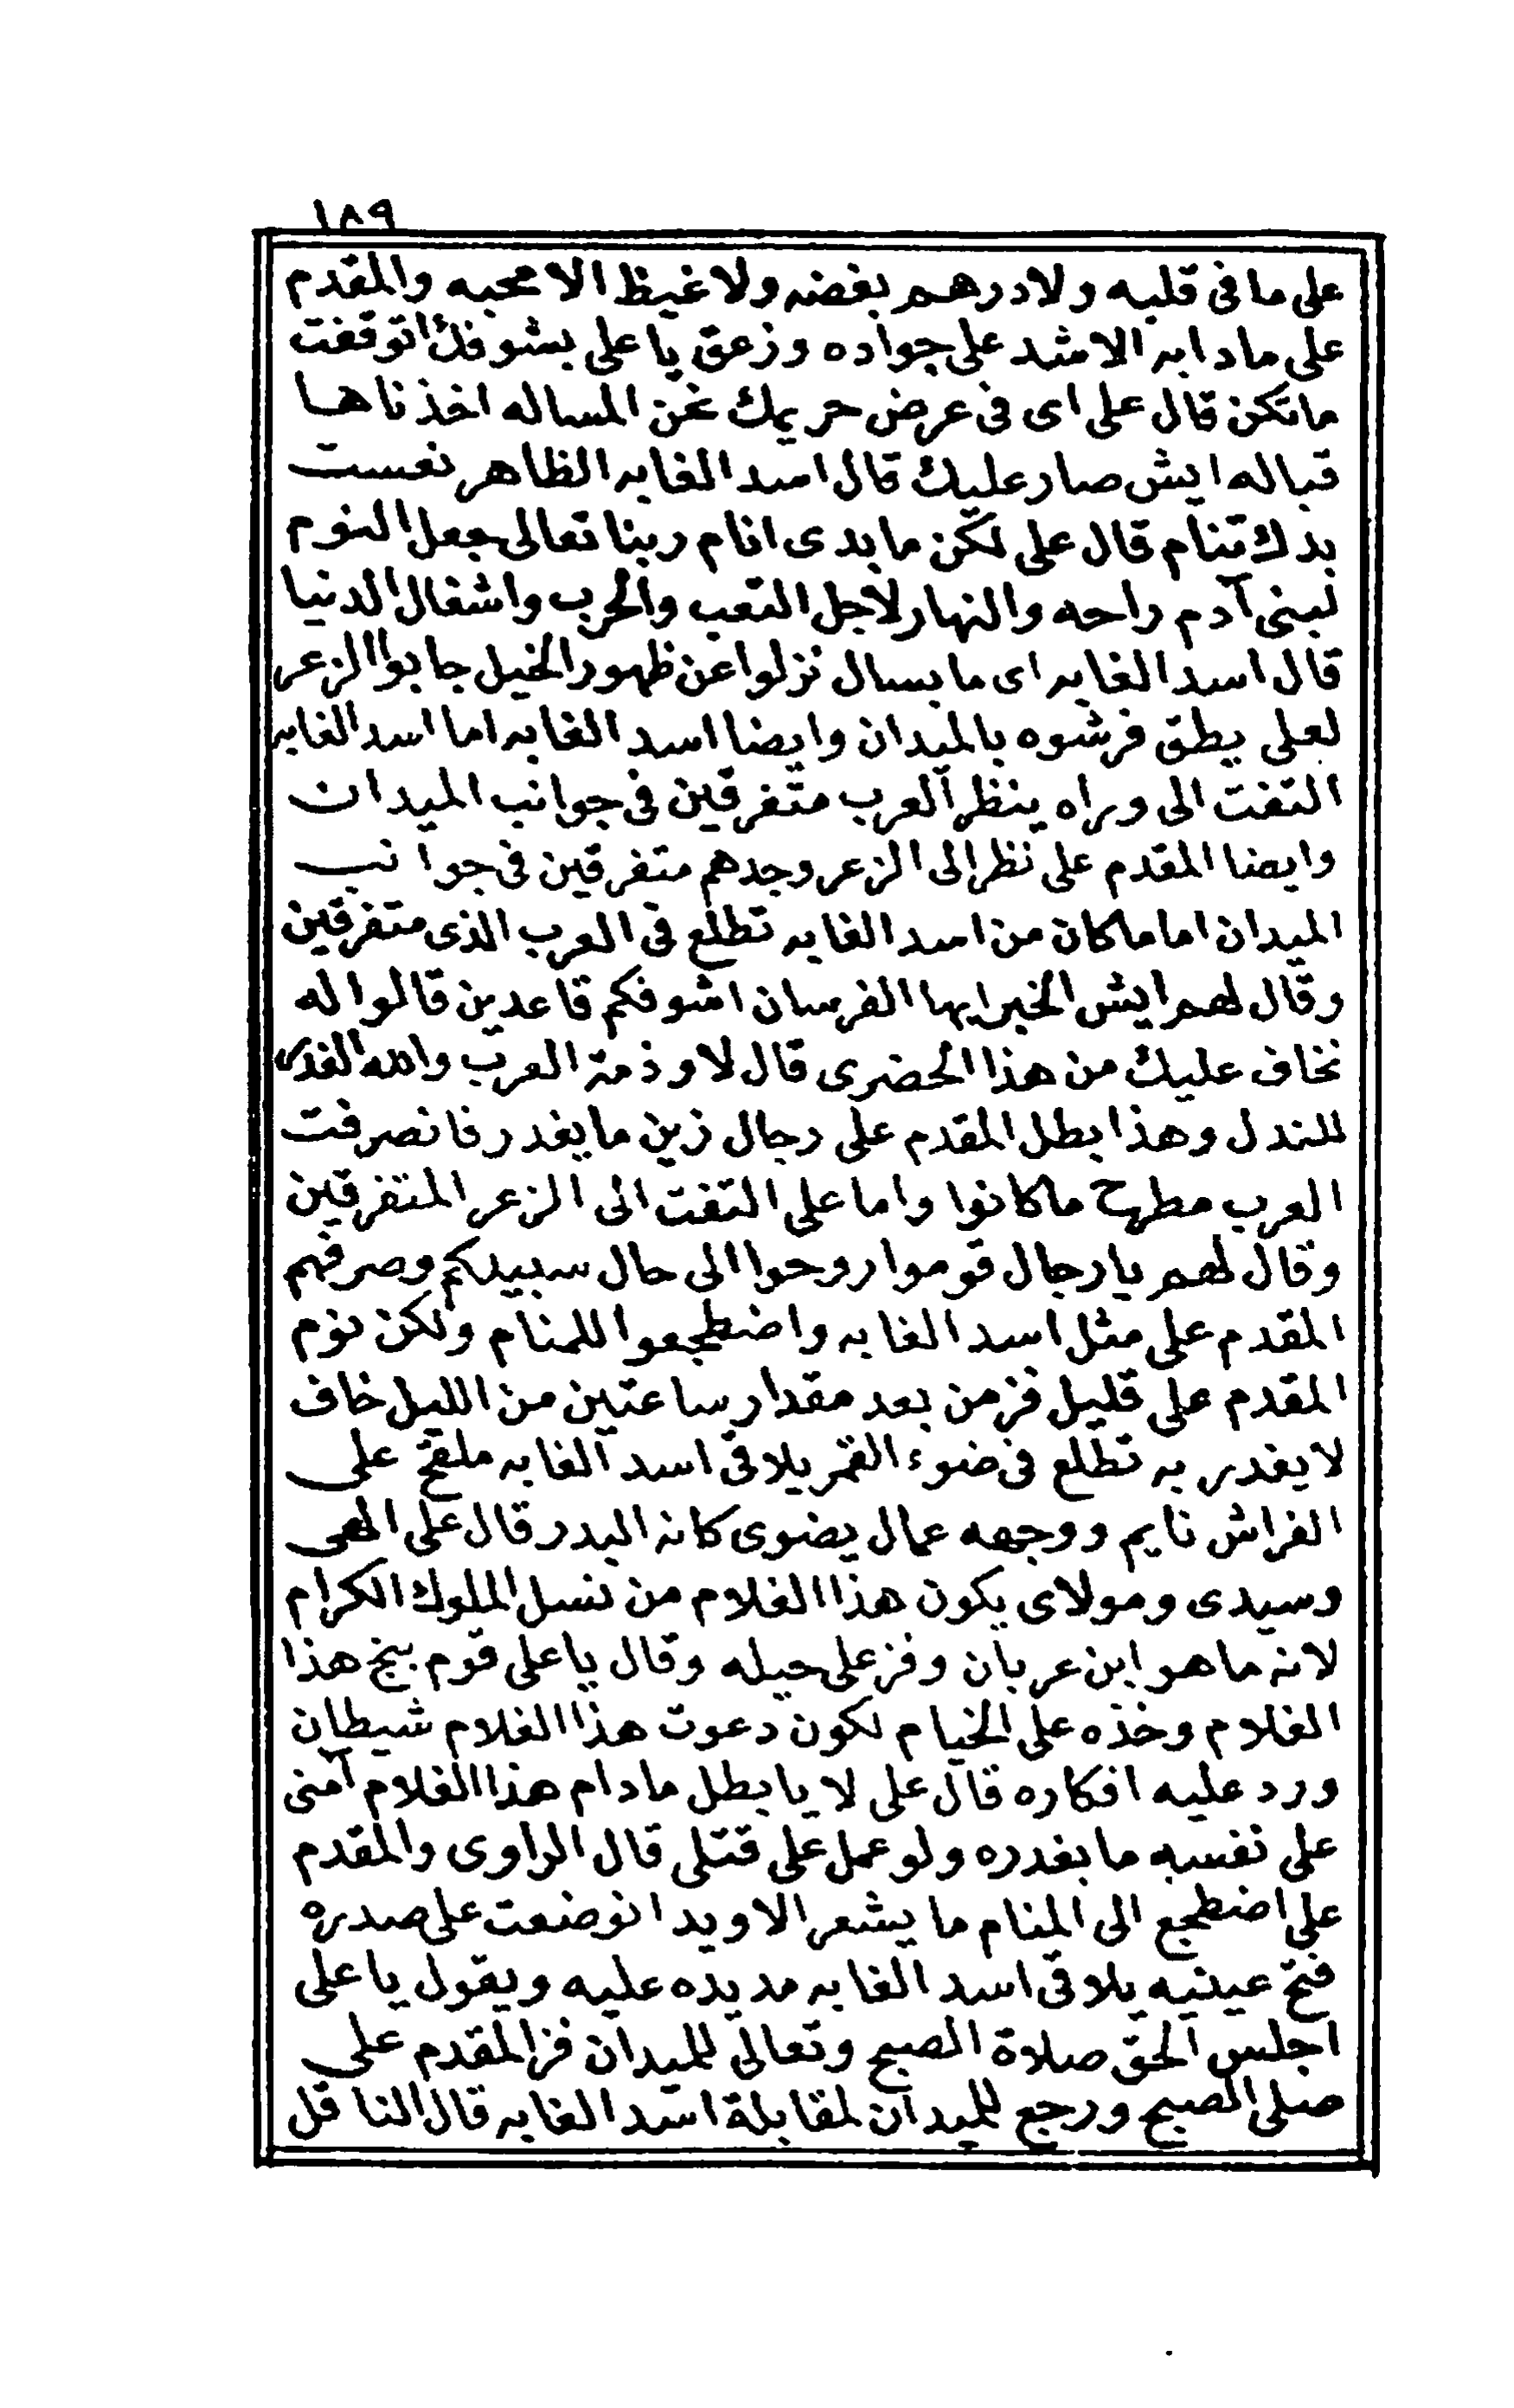 ١٨٩
على ما فى قلبه ولا درهم بغضه ولا غيظ الا محبه والمقدم
على ما دابه الا شد على جواده وزعق يا على بشوفك اتوقفت
ما تكن قال على اى فى عرض حريمك نحن المساله اخذناها
قباله ايش صار عليك قال اسد الغابه الظاهر نعست
بدك تنام قال على لكن ما بدى انام ربنا تعالى جعل النوم
لبنى آدم راحه والنهار لاجل التعب والحرب واشغال الدنيا
قال اسد الغابه اى ما بسال نزلوا عن ظهور الخيل جابوا الزعر
لعلى يطق فرشوه بالميدان وايضا اسد الغابه اما اسد الغابه
التفت الى وراه ينظر العرب متفرقين فى جوانب الميدان
وايضا المقدم على نظر الى الزعر وجدهم متفرقين فى جوانب
الميدان اما ما كان من اسد الغابه تطلع فى العرب الذى متفرقين
وقال لهم ايش الخبر ايها الفرسان اشوفكم قاعدين قالوا له
نخاف عليك من هذا الحضرى قال لا وذمة العرب والله الغدر
للندل وهذا بطل المقدم على رجال زين ما يغدر فانصرفت
العرب مطرح ما كانوا واما على التفت الى الزعر المتفرقين
وقال لهم يا رجال قوموا روحوا الى حال سبيلكم وصرفهم
المقدم على مثل اسد الغابه واضطجعوا للمنام ولكن نوم
المقدم على قليل فز من بعد مقدار ساعتين من الليل خاف
لا يغدر به تطلع فى ضوء القمر يلاقى اسد الغابه ملقح على
الفراش نايم ووجهه عمال يضوى كانه البدر قال على الهى
وسيدى ومولاى يكون هذا الغلام من نسل الملوك الكرام
لانه ما هو ابن عربان وفز على حيله وقال يا على قوم بنج هذا
الغلام وخذه على الخيام لكون دعوت هذا الغلام شيطان
ورد عليه افكاره قال على لا يا بطل ما دام هذا الغلام آمنى
على نفسه ما بغدره ولو عمل على قتلى قال الراوى والمقدم
على اضطجع الى المنام ما يشعر الا ويد انوضعت على صدره
فتح عينيه يلاقى اسد الغابه مد يده عليه ويقول يا على
اجلس الحق صلاة الصبح وتعالى للميدان فز المقدم على
صلى الصبح ورجع للميدان لمقابلة اسد الغابه قال الناقل